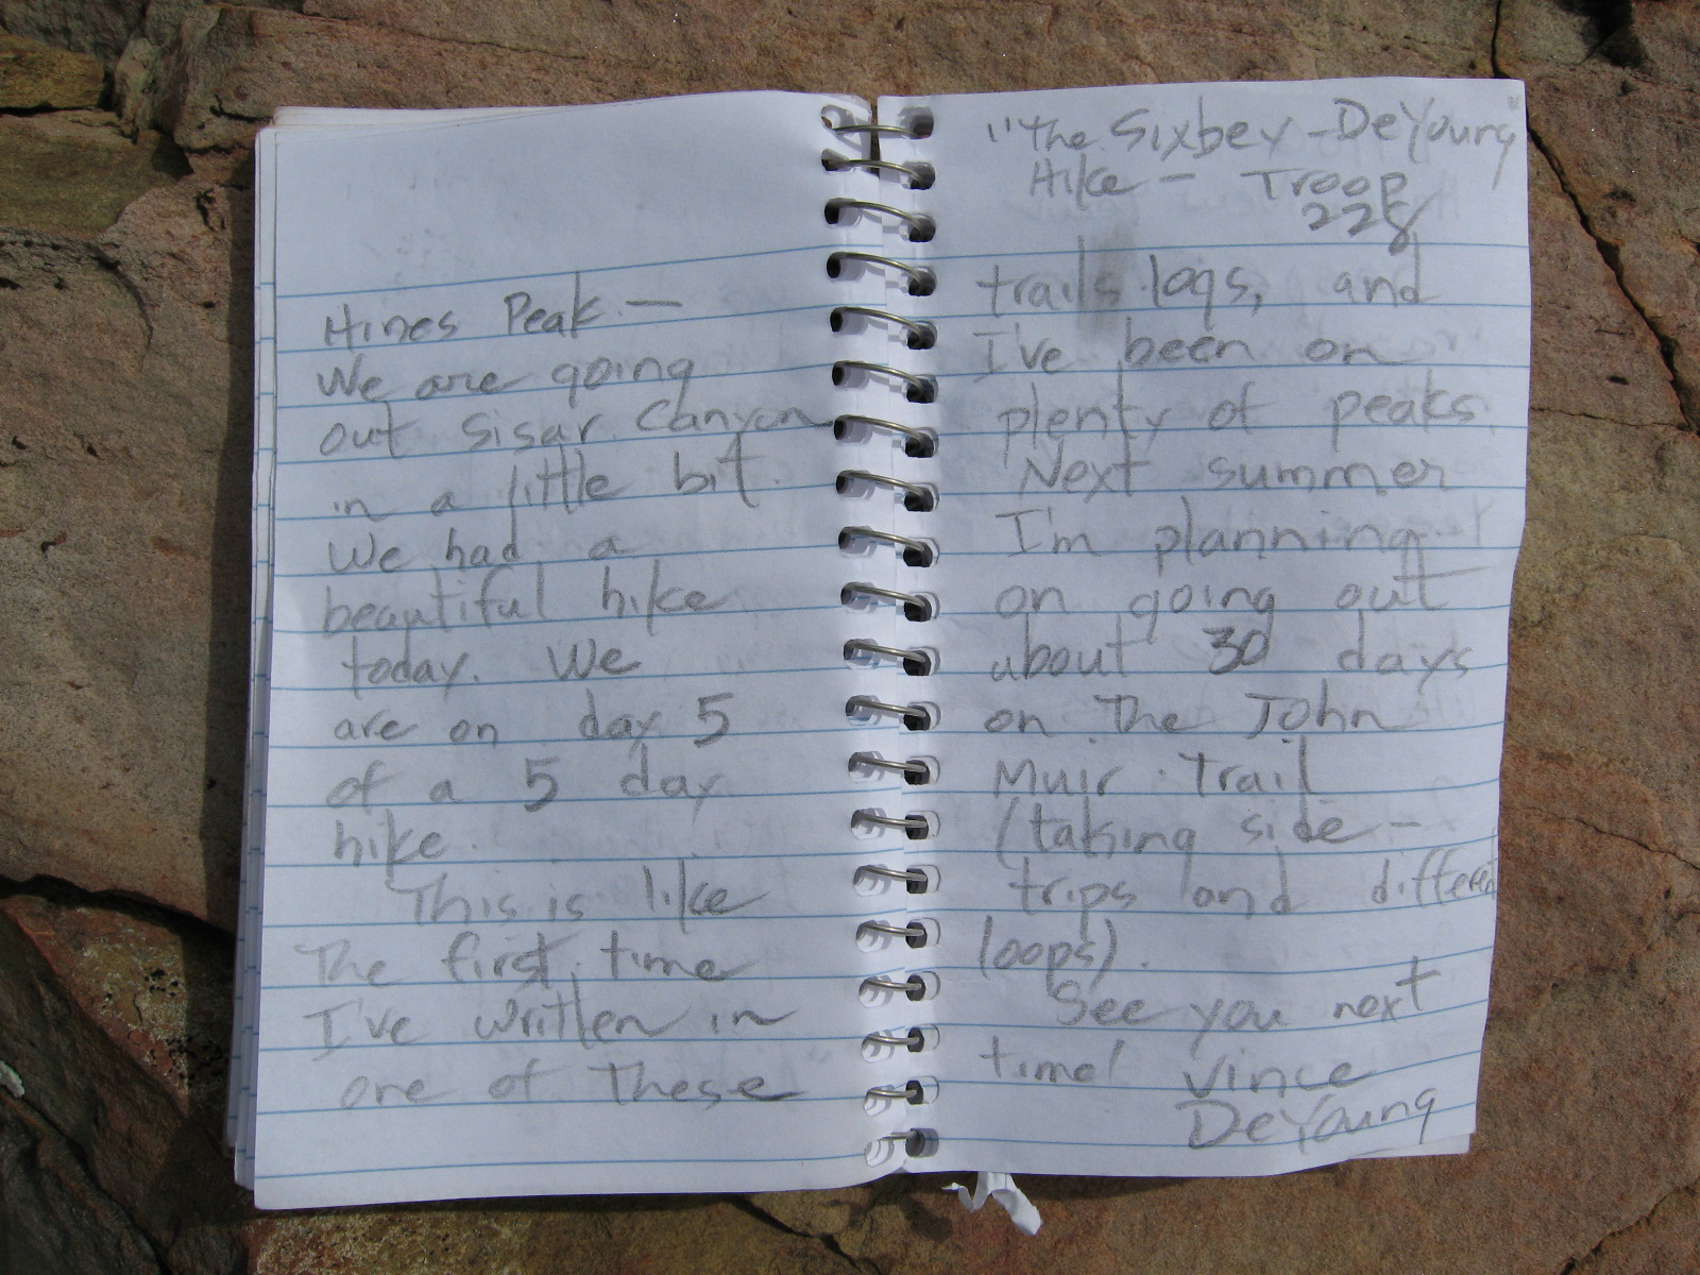 Hines Peak. —
We are going
out Sisar Canyon
in a little bit.
We had a
beautiful hike
today. We
are on day 5
of a 5 day
hike.
This is like
The first time
I've written in
one of These
"The Sixbey-DeYoung
Hike - Troop
228
trails logs, and
I've been on
plenty of peaks.
Next summer
I'm planning
on going out
about 30 days
on The John
Muir Trail
(taking side-
trips and different
loops).
See you next
time! Vince
DeYoung